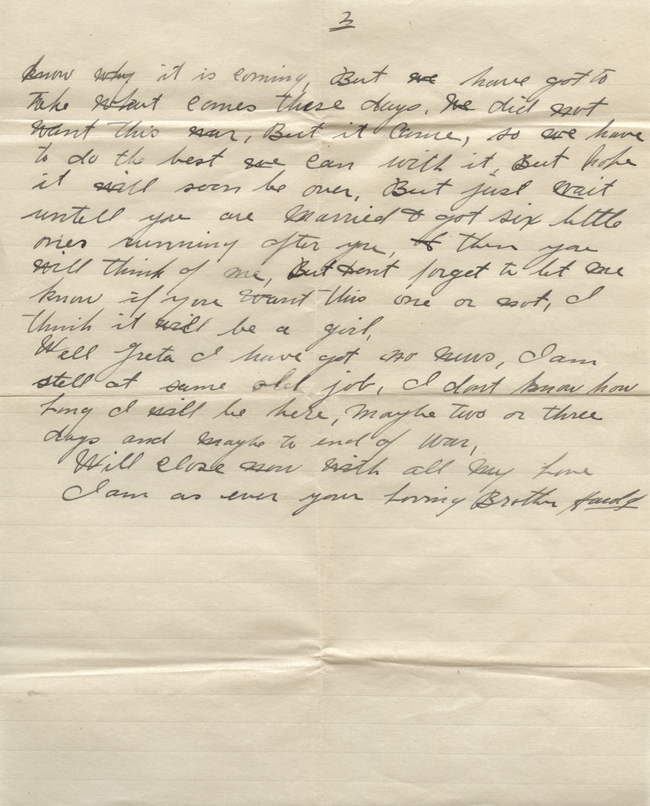 3
know why it is coming, But we have got to
Take what comes these days. We did not
want this war, But it Came, so we have
to do the best we can with it, But hope
it will soon be over, But just wait
untell you are Married & got six little
ones running after you, & then you
will think of me, But Dont forget to let me
know if you want this one or not, I
think it will be a girl,
Well Greta I have got no news, I am
still at same old job, I dont know how
Long I will be here, Maybe two or three
days and maybe to end of war,
Will close now with all My Love
I am as ever your Loving Brother